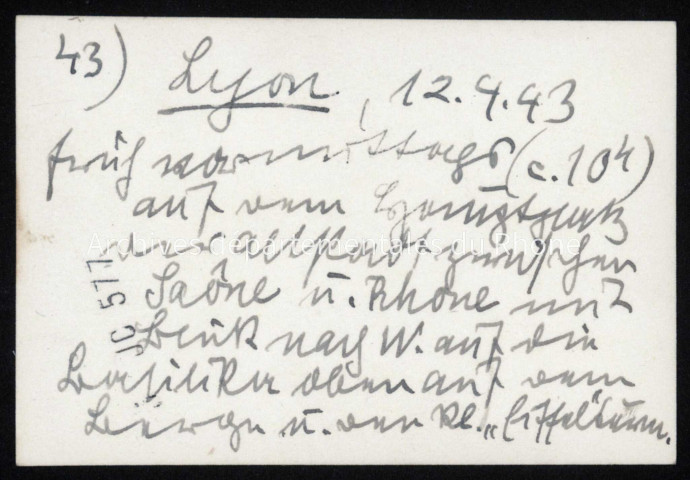 43) Lyon, 12.4.43
früh vormittags (c. 10 h)
auf dem Hauptplatz
der Altstadt zwischen
Saône u. Rhône mit
Blick nach W. auf die
Basilika oben auf dem
Berge u. den kl. „Eiffel"turm.
JC 577
Archives départementales du Rhône